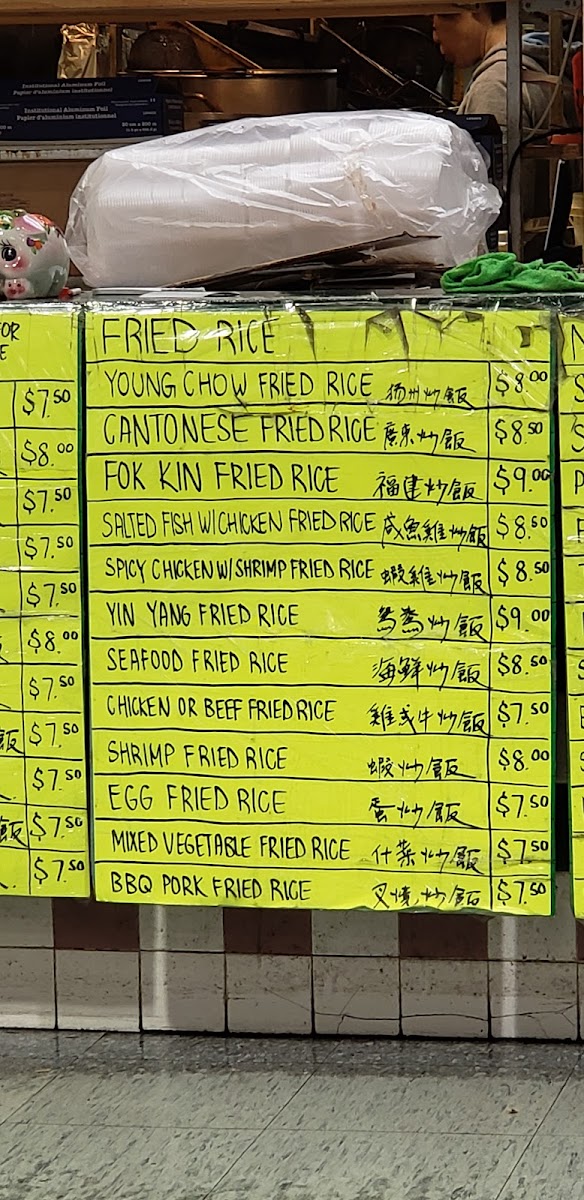 Institutional Aluminum Foil
Papier d'aluminium institutionnel
Institutional Aluminum Foil
Papier d'aluminium institutionnel
FOR
$7.50
$8.00
$7.50
$7.50
$7.50
$8.00
$7.50
飯 $7.50
$7.50
飯 $7.50
$7.50
FRIED RICE
YOUNG CHOW FRIED RICE 揚州炒飯 $8.00
CANTONESE FRIED RICE 廣東炒飯 $8.50
FOK KIN FRIED RICE 福建炒飯 $9.00
SALTED FISH W/CHICKEN FRIED RICE 咸魚雞炒飯 $8.50
SPICY CHICKEN W/SHRIMP FRIED RICE 蝦雞炒飯 $8.50
YIN YANG FRIED RICE 鴛鴦炒飯 $9.00
SEAFOOD FRIED RICE 海鮮炒飯 $8.50
CHICKEN OR BEEF FRIED RICE 雞或牛炒飯 $7.50
SHRIMP FRIED RICE 蝦炒飯 $8.00
EGG FRIED RICE 蛋炒飯 $7.50
MIXED VEGETABLE FRIED RICE 什菜炒飯 $7.50
BBQ PORK FRIED RICE 叉燒炒飯 $7.50